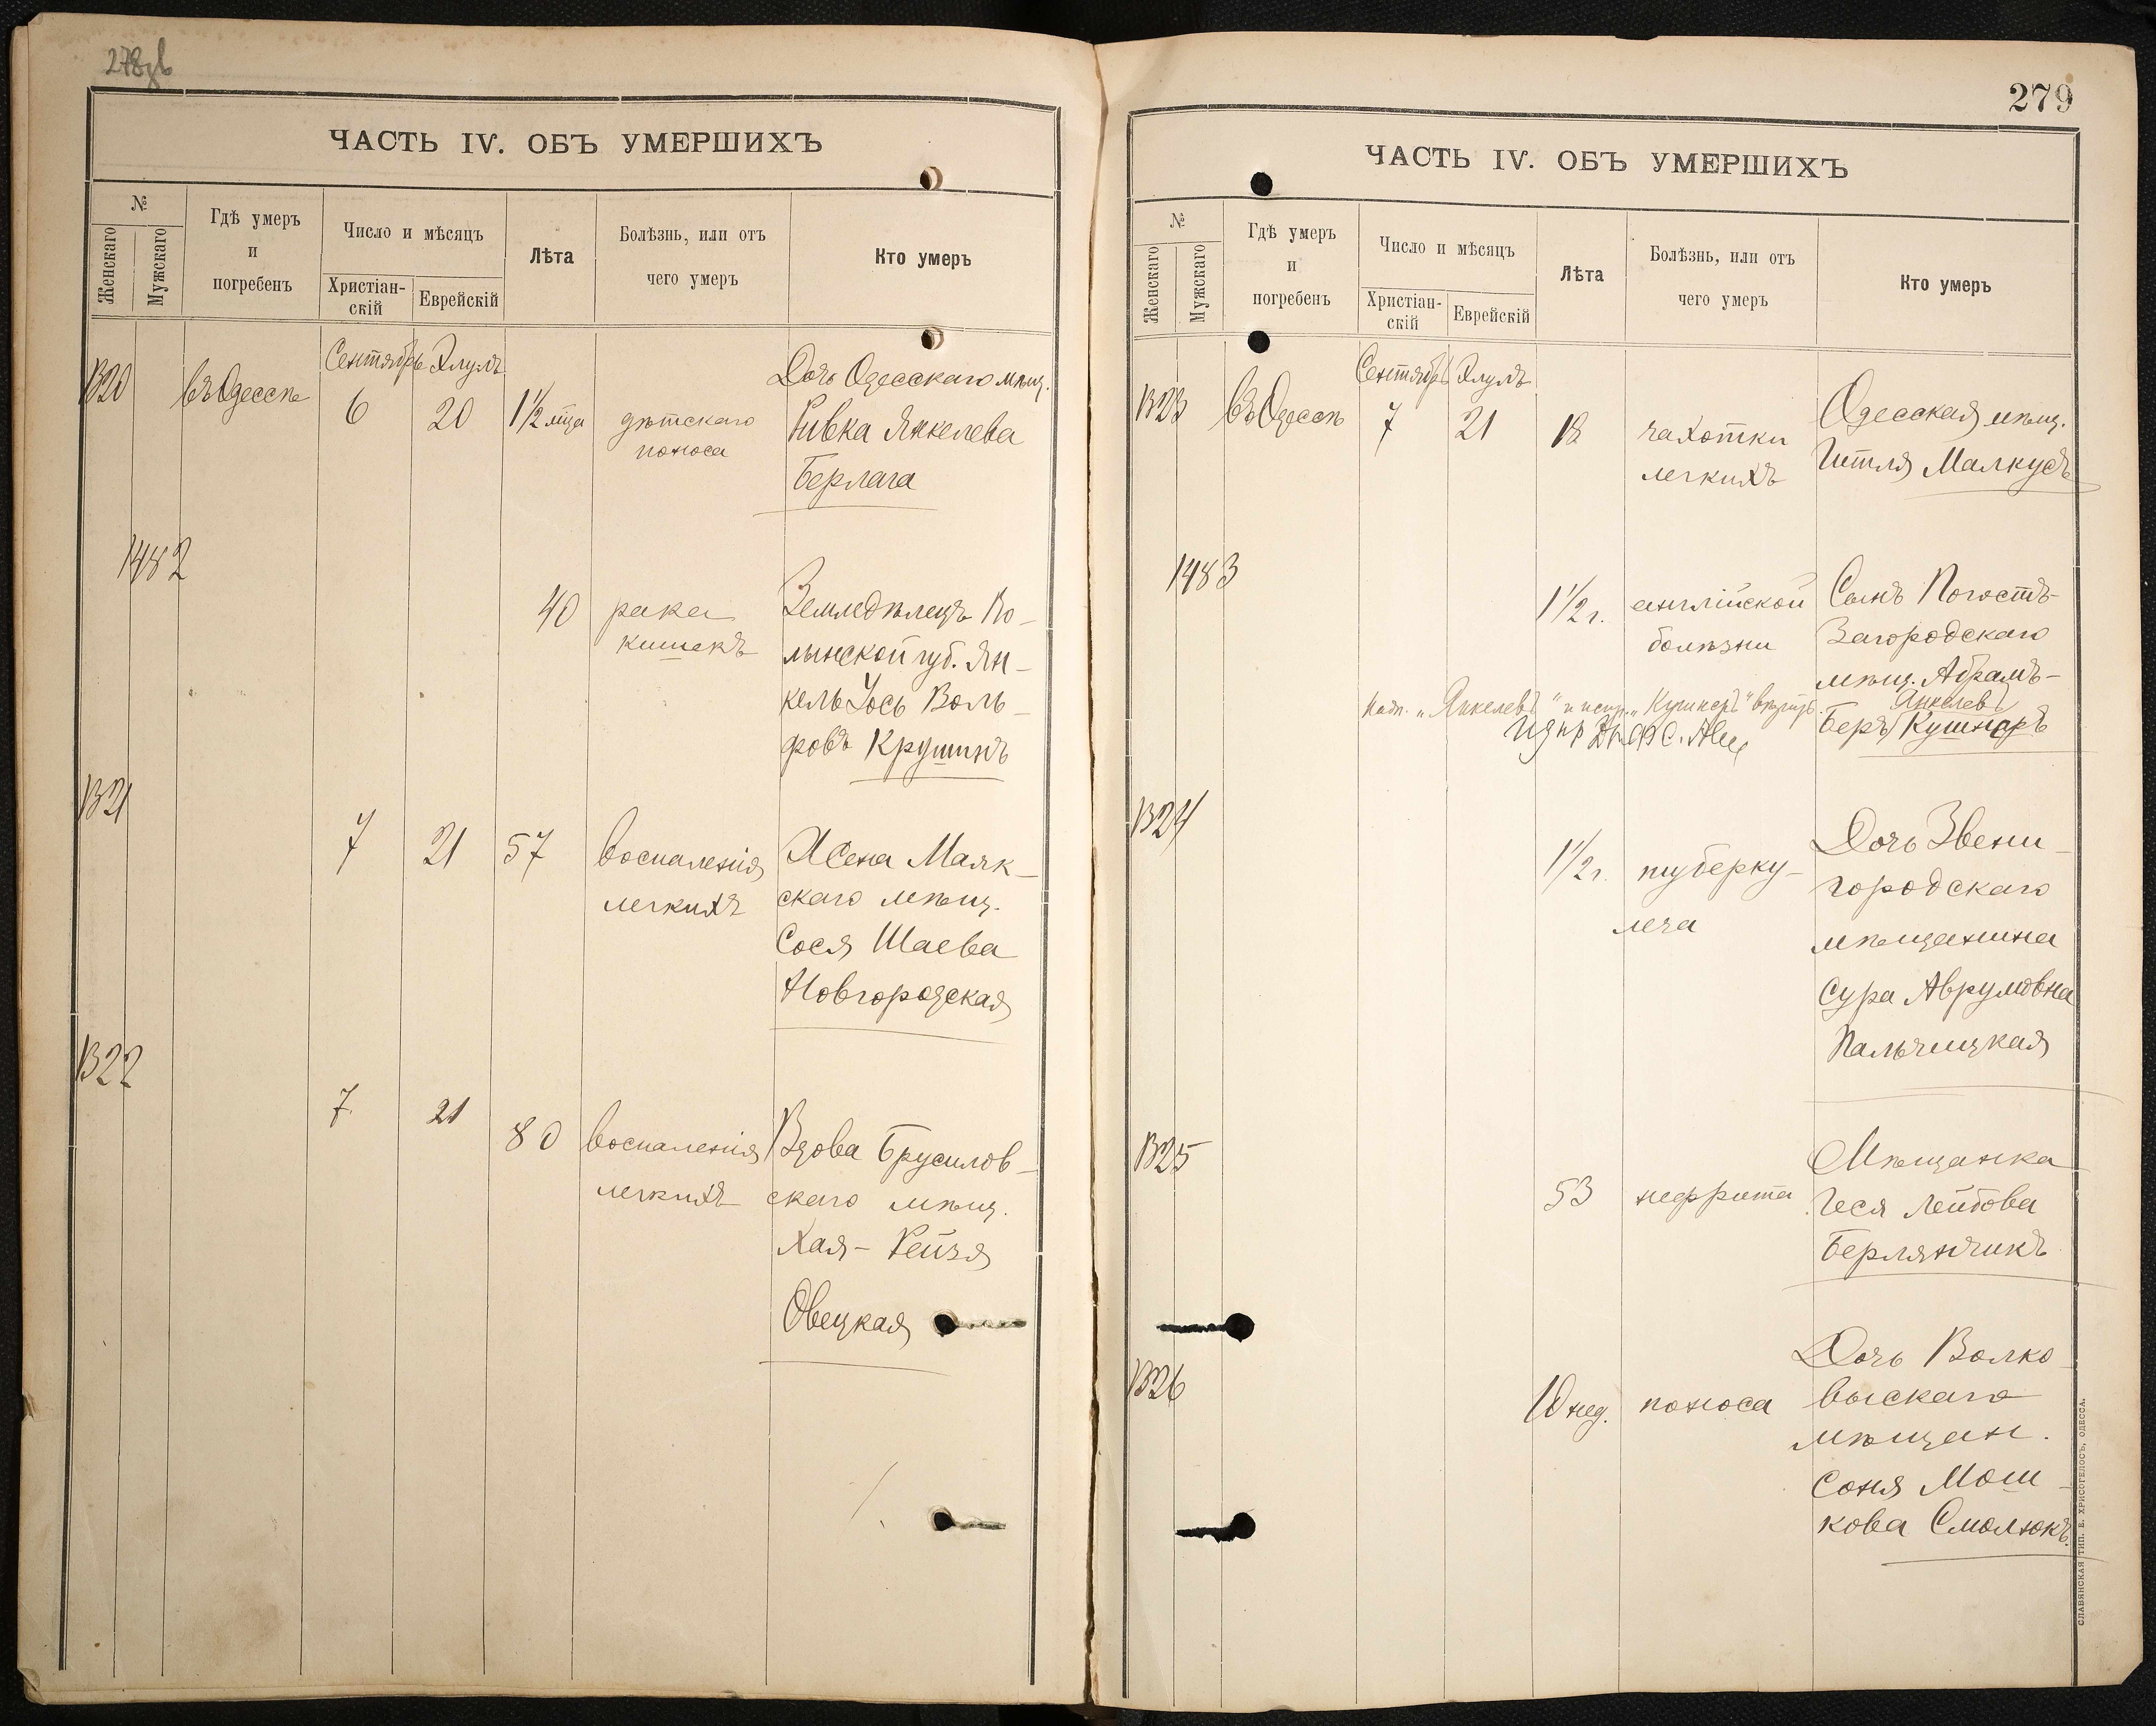 278зв
ЧАСТЬ IV. ОБЪ УМЕРШИХЪ
№
Женскаго
Мужскаго
Гдѣ умеръ
и
погребенъ
Число и мѣсяцъ
Христіан-
скій
Еврейскій
Лѣта
Болѣзнь, или отъ
чего умеръ
Кто умеръ
Сентябрь Элулъ
1320 въ Одессѣ 6 20 1 1/2 мѣс. дѣтскаго
поноса
Дочь Одесскаго мѣщ.
Ривка Янкелева
Берлага
1482
40 рака
кишекъ
Земледѣлецъ Во-
лынской губ. Ян-
кель Іось Воль-
фовъ Крушинъ
1321
7 21 57 воспаленія
легкихъ
Жена Маяк-
скаго мѣщ.
Сося Шаева
Новгородская
1322
7 21 80 воспаленія
легкихъ
Вдова Брусилов-
скаго мѣщ.
Хая-Рейзя
Овецкая
279
ЧАСТЬ IV. ОБЪ УМЕРШИХЪ
№
Женскаго
Мужскаго
Гдѣ умеръ
и
погребенъ
Число и мѣсяцъ
Христіан-
скій
Еврейскій
Лѣта
Болѣзнь, или отъ
чего умеръ
Кто умеръ
Сентябрь Элулъ
1323 въ Одессѣ 7 21 18 чахотки
легкихъ
Одесская мѣщ.
Гитля Малкусъ
1483
1 1/2 г. англійской
болѣзни
Сынъ Погостъ-
Загородскаго
мѣщ. Абрамъ-
Янкелевъ
Беръ Кушнеръ
Надп. „Янкелевъ" и испр. „Кушнеръ"
1324
1 1/2 г. туберку-
леза
Дочь Звени-
городскаго
мѣщанина
Сура Аврумовна
Пальчицкая
1325
53 нефрита
Мѣщанка
Геся Лейбова
Берлянчикъ
1326
10 нед. поноса
Дочь Волко-
выскаго
мѣщан.
Соня Мош-
кова Смолюкъ.
СЛАВЯНСКАЯ ТИП. Е. ХРИСОГЕЛОСЪ, ОДЕССА.